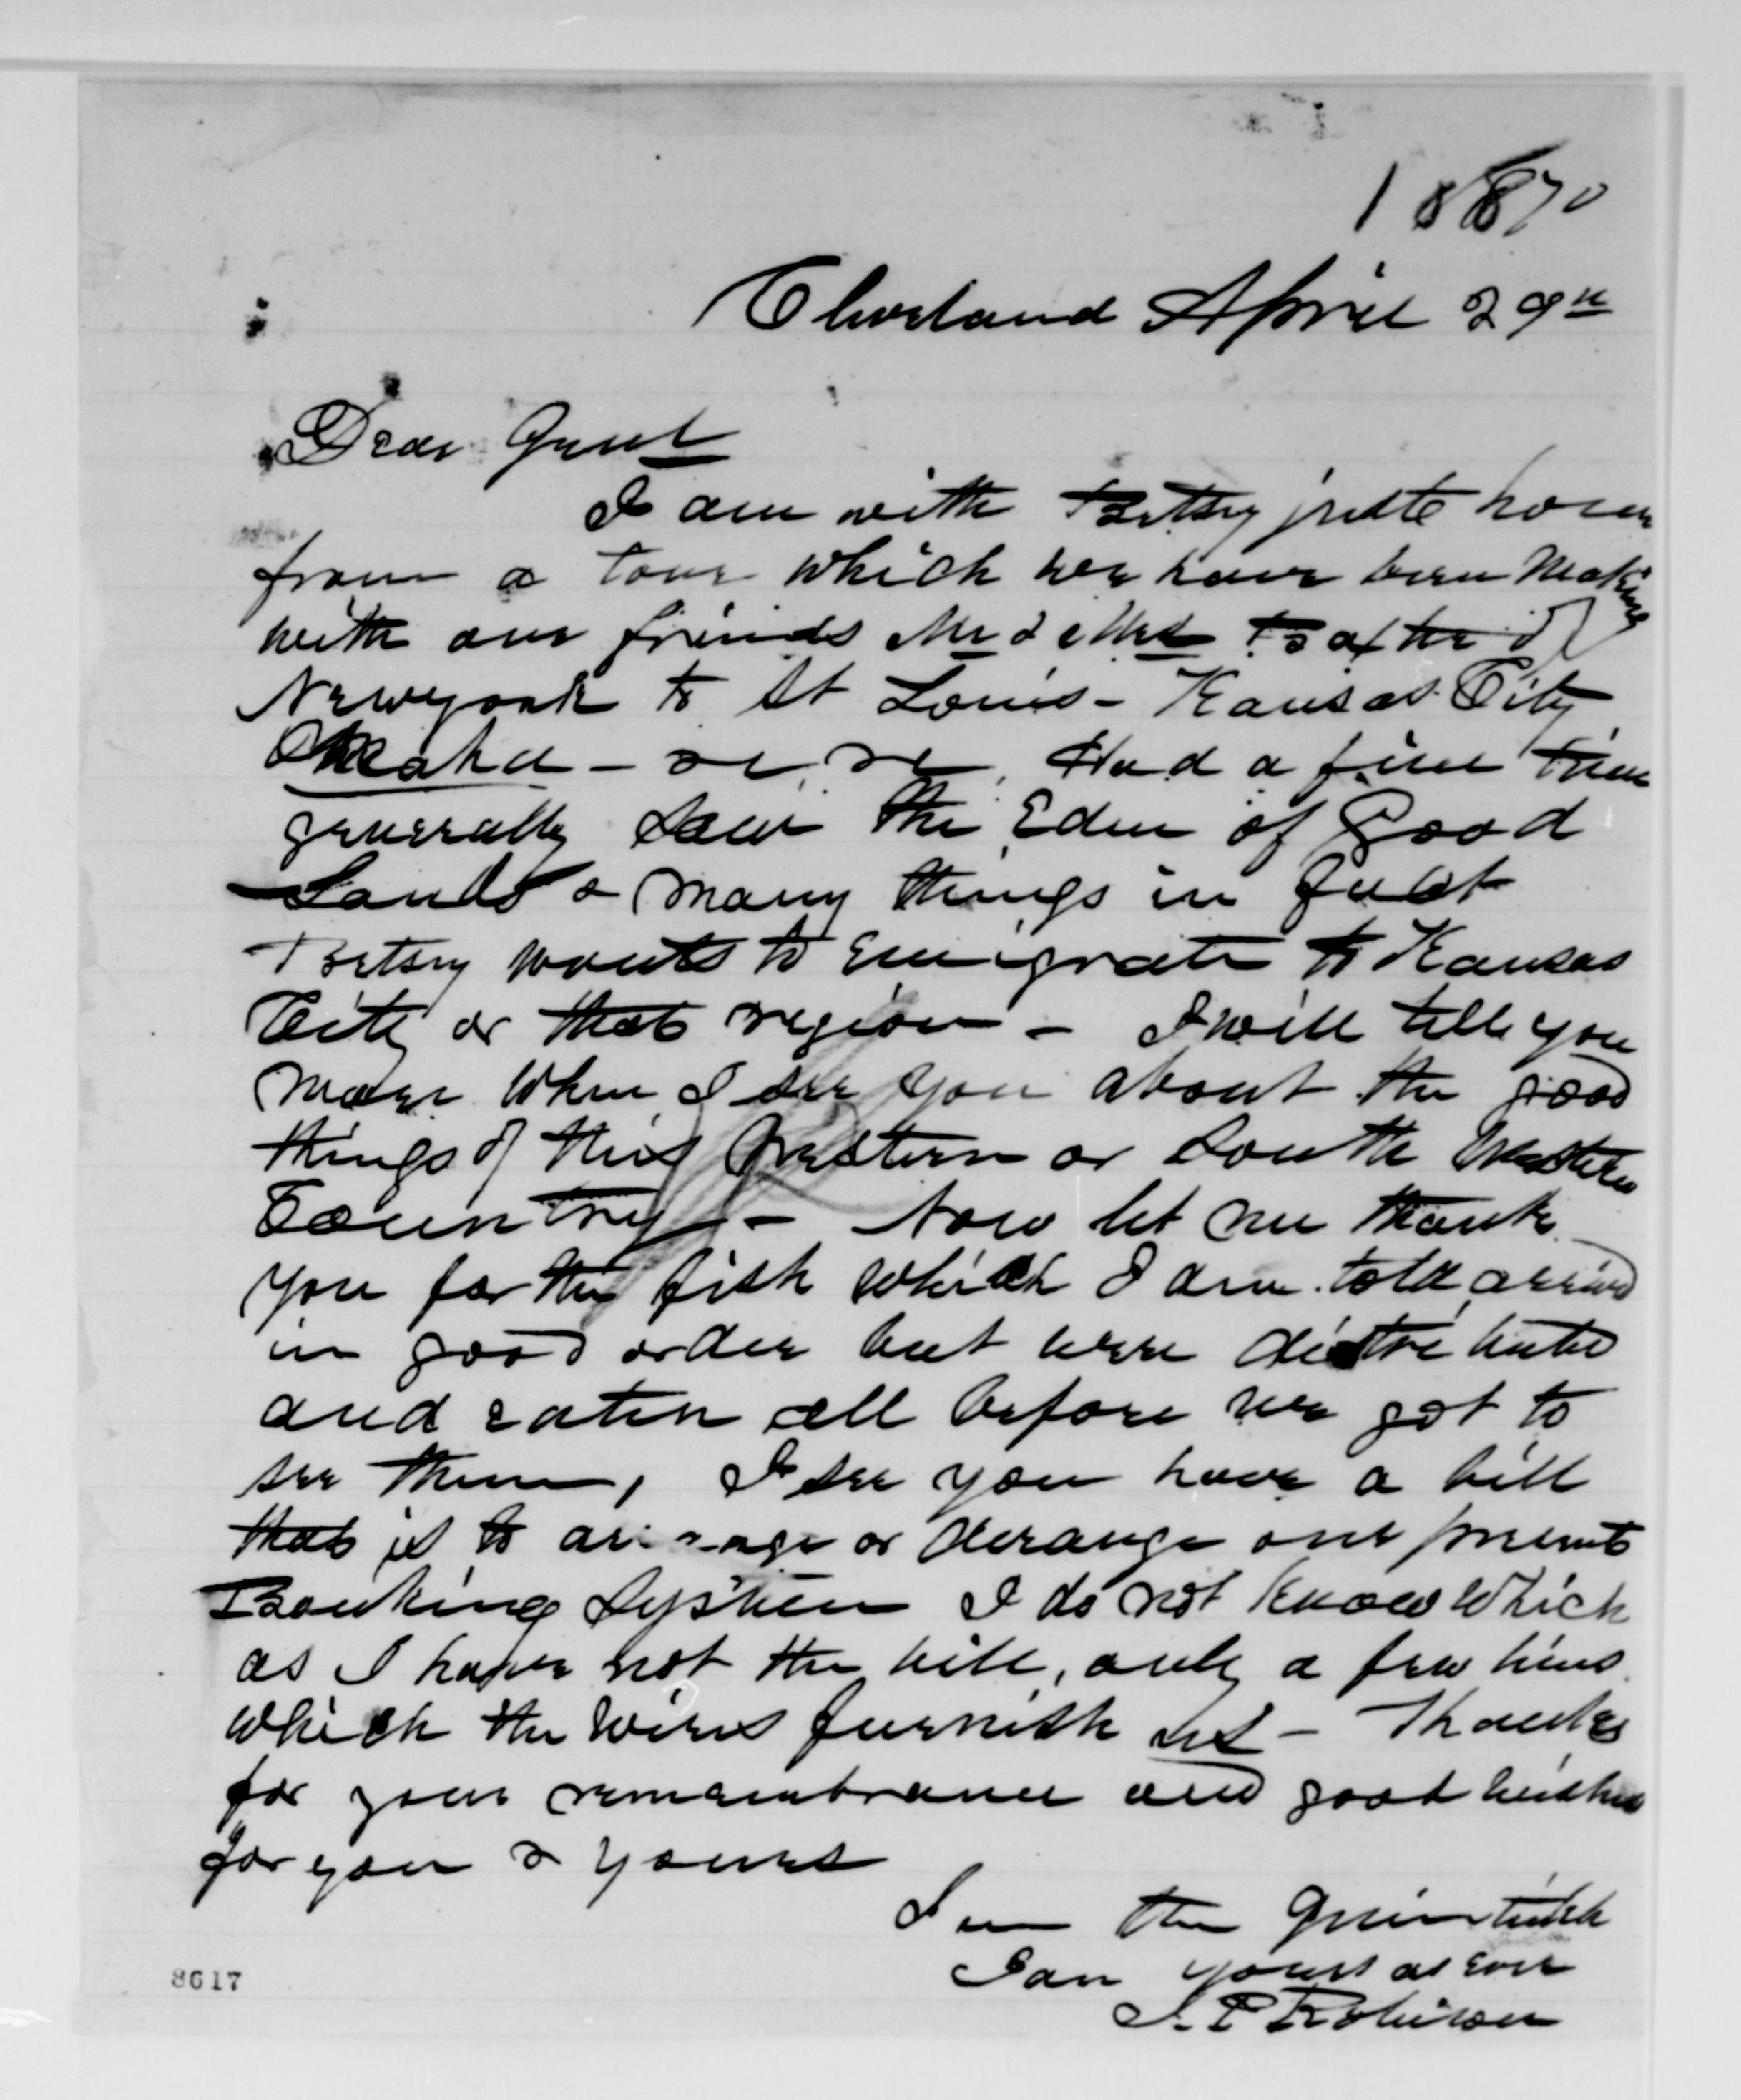 1870
Cleveland April 29th
Dear Gen'l
I am with Betsy just home
from a tour which we have been making
with our friends Mr & Mrs Baxter of
Newyork to St Louis - Kansas City
Omaha - &c, &c, Had a fine time
generally saw the Eden of Good
Lands & many things in fact
Betsy wants to Emigrate to Kansas
City or that region - I will tell you
more when I see you about the good
things of this Western or South Western
Country - Now let me thank
you for the fish which I am told arrived
in good order but were distributed
and eaten all before we got to
see them, I see you have a bill
that is to arrange or derange our present
Banking System I do not know which
as I have not the bill, only a few lines
which the wires furnish us - Thanks
for your remembrance and good wishes
for you & yours
I am the
I am yours as ever
J. P. Robison
8617